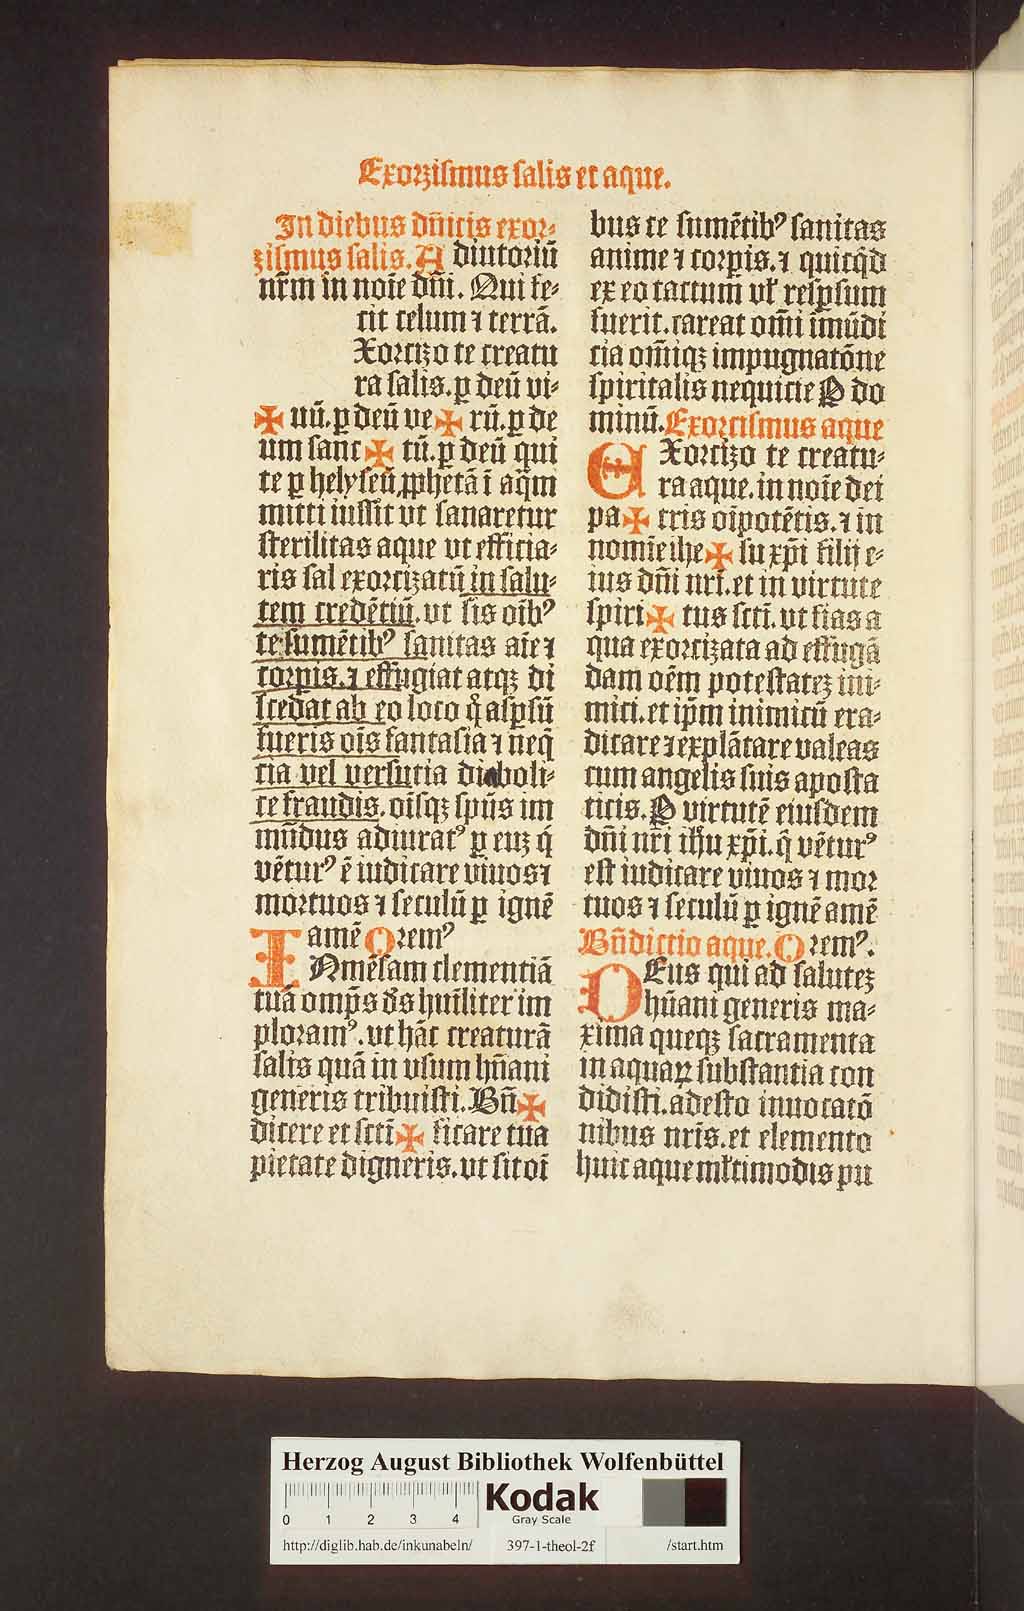 Exorzismus salis et aque.
In diebus dn̄icis exor⸗
zismus salis. Adiutoriū
nr̄m in noīe dn̄i. Qui fe⸗
cit celum ⁊ terrā.
Xorcizo te creatu
ra salis. ꝑ deū vi⸗
✠ uū. ꝑ deū ve ✠ rū. ꝑ de
um sanc ✠ tū. ꝑ deū qui
te ꝑ helyseū ꝓphetā ī aq̄m
mitti iussit vt sanaretur
sterilitas aque vt efficia⸗
ris sal exorcizatū in salu⸗
tem credētiū. vt sis oīb⁹
te sumētib⁹ sanitas aīe ⁊
corꝑis. ⁊ effugiat atqꝫ di
scedat ab eo loco q̊ asꝑsū
fueris oīs fantasia ⁊ neq̄
cia vel versutia diaboli⸗
ce fraudis. oīsqꝫ sp̄us im
mūdus adiurat⁹ ꝑ euꝫ q̇
vētur⁹ ē iudicare viuos ⁊
mortuos ⁊ seculū ꝑ ignē
amē Orem⁹
INmēsam clementiā
tuā omp̄s d̄s hūiliter im
ploram⁹. vt hāc creaturā
salis quā in vsum hūani
generis tribuisti. Bn̄ ✠
dicere et sctī ✠ ficare tua
pietate digneris. vt sit oī
bus te sumētib⁹ sanitas
anime ⁊ corꝑis. ⁊ quicq̇d
ex eo tactum vł resꝑsum
fuerit. careat om̄i īmūdi
cia om̄iqꝫ impugnatōne
spiritalis nequicie P do
minū. Exorcismus aque
EXorcizo te creatu⸗
ra aque. in noīe dei
pa ✠ tris oīpotētis. ⁊ in
nomīe ihe ✠ su xp̄i filij e⸗
ius dn̄i nr̄i. et in virtute
spiri ✠ tus sctī. vt fias a
qua exorcizata ad effugā
dam oēm potestateꝫ ini⸗
mici. et ip̄m inimicū era⸗
dicare ⁊ explātare valeas
cum angelis suis aposta
ticis. P virtutē eiusdem
dn̄i nr̄i ih̄u xp̄i. q̇ vētur⁹
est iudicare viuos ⁊ mor
tuos ⁊ seculū ꝑ ignē amē
Bn̄dictio aque. Orem⁹.
DEus qui ad saluteꝫ
hūani generis ma⸗
xima queqꝫ sacramenta
in aquaꝝ substantia con
didisti. adesto inuocatō
nibus nr̄is. et elemento
huic aque młtimodis pu
Herzog August Bibliothek Wolfenbüttel
0 1 2 3 4
Kodak
Gray Scale
http://diglib.hab.de/inkunabeln/ 397-1-theol-2f /start.htm